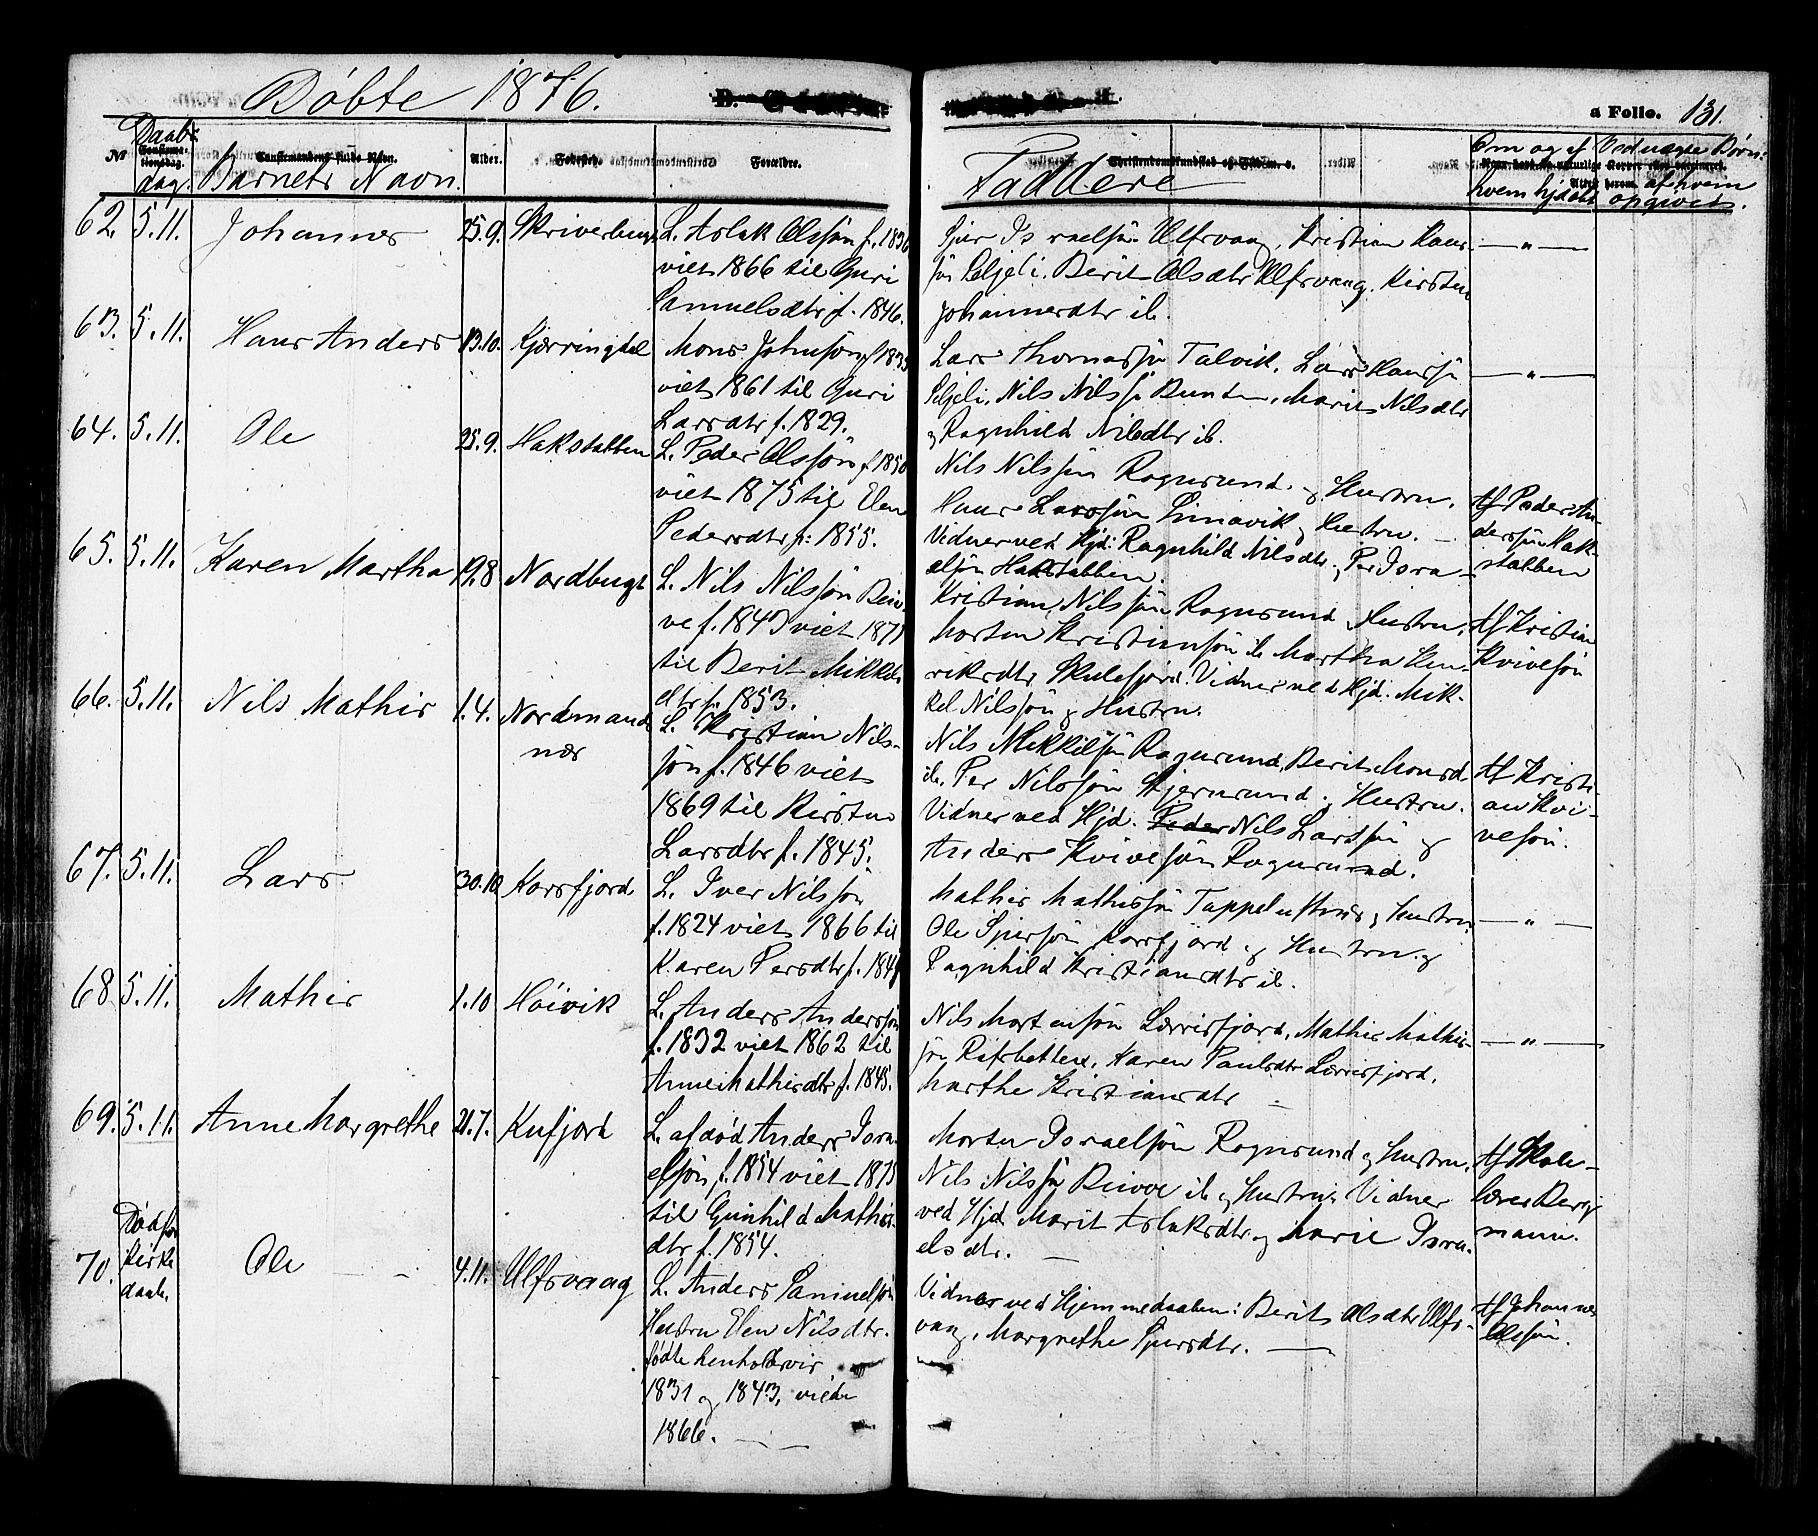 Döbte 1876.
a Folio. 131.
No
Daabs
dag.
Confirmandens fulde Navn.
Barnets Navn.
Alder.
Fødested.
Forældre.
Faddere
Om og af
hvem hjdøbt
Ved uægte Børn:
af hvem
opgives.
62. 5.11. Johannes 25.9.
L. Aslak Olssön f. 1836
viet 1866 til Guri
Samuelsdtr f. 1846.
Sjur Israelsön Ulfsvaag, Kristian Hans-
sön Seljeli. Berit Olsdtr Ulfsvaag. Kirsten
Johannesdtr ib.
— " —
63. 5.11. Hans Anders 13.10. Kjærringdal
Mons Johnsön f 1835
viet 1861 til Guri
Larsdtr f. 1829.
Lars Thomassön Talvik, Lars Hanssön
Seljeli, Nils Nilssön Bunden, Marit Nilsdtr
og Ragnhild Nilsdtr ib.
— " —
64. 5.11. Ole 25.9. Hakstabben
L. Peder Olssön f 1850
viet 1875 til Elen
Pedersdtr f: 1855.
Nils Nilssön Rognsund og Hustru.
Hans Larssön Simavik og Hustru. —
Vidner ved Hjd: Ragnhild Nilsdtr og Per Isra-
elsön Hakstabben.
Af Peder An-
derssön Hak-
stabben
65. 5.11. Karen Martha 19.8 Nordbugt
L. Nils Nilssön Beiv-
ve f. 1843 viet 1871
til Berit Mikkels
dtr f. 1853.
Kristian Nilssön Rognsund Hustru.
Morten Kristianssön ib Martha Hen-
riksdtr Skillefjord. Vidner ved Hjd. Mik-
kel Nilssön og Hustru.
Af Kristian
Kvivesön
66. 5.11. Nils Mathis 1.4. Nordmands
nær
L. Kristian Nils-
sön f. 1846 viet
1869 til Kirsten
Larsdtr f. 1845.
Nils Mikkelsön Rognsund, Berit Monsd
ib. Per Nilssön Stjernsund og Hustru.
Vidner ved Hjd. Peder Nils Larssön og
Anders Kvivesön Rognsund.
Af Kristi-
an Kvi-
vesön.
67. 5.11. Lars 30.10 Korsfjord
L. Iver Nilssön
f. 1824 viet 1866 til
Karen Persdtr f.
Mathis Mathissön Tappeluft og Hustru
Ole Sjursön Korsfjord og Hustru og
Ragnhild Kristiansdtr ib.
— " —
68 5.11. Mathis 1.10 Höivik
L. Anders Anderssön
f. 1832 viet 1862 til
Anne Mathisdtr f. 1845.
Nils Mortensön Lærrisfjord, Mathis Mathis-
sön Rafsbotten, Karen Paulsdtr Lærrisfjord,
Marthe Kristiansdtr —
— " —
69. 5.11. Anne Margrethe 21.7. Kufjord
L. afdöd Anders Isra-
elsön f. 1854 viet 1875
til Gunhild Mathis-
dtr f. 1854.
Morten Israelsön Rognsund og Hustru,
Nils Nilssön Beivve ib og Hustru. Vidner
ved Hjd Marit Aslaksdtr og Marie Isra-
elsdtr. —
Af Skole-
lærer Berg
mann.
70. Död för
kirke
daab. Ole — - 4.11. Ulfsvaag
L. Anders Samuelsön
Hustru Elen Nilsdtr.
födte henholdsvis
1831 og 1843, viede
1866. —
Vidner ved Hjemmedaaben: Berit Olsdtr Ulfs-
vaag, Margrethe Sjursdtr. —
Af Johannes
Olssön.